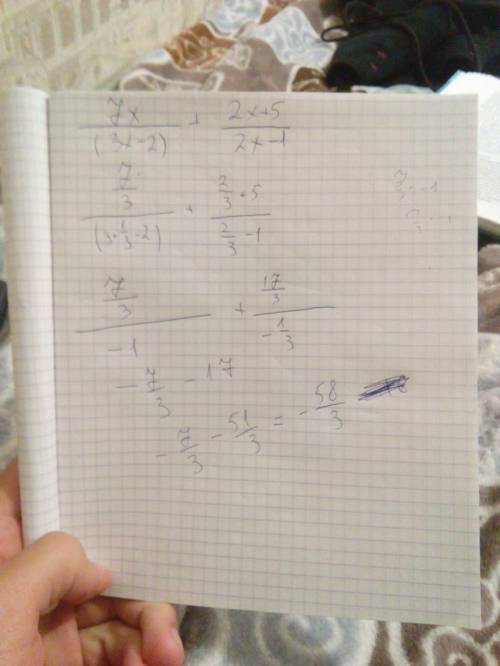 7x/(3x-2) + (2x+5)/(2x-1)
(7/3)/(3·1/3-2) + (2/3+5)/(2/3-1)
(7/3)/-1 + (17/3)/(-1/3)
-7/3 - 17
-7/3 - 51/3 = -58/3